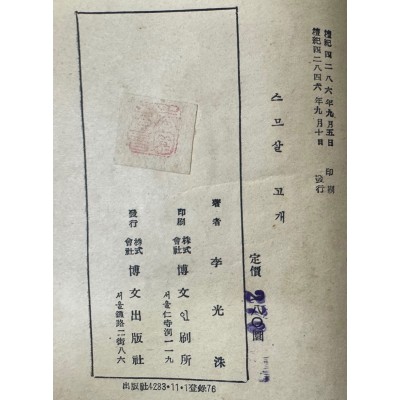 檀紀四二八六年九月五日 印刷
檀紀四二八六年九月十日 發行
스므살 고개
定價 圜
著者 李光洙
印刷 株式會社 博文인刷所
서울仁寺洞一一九
發行 株式會社 博文出版社
서울鐘路二街八六
出版社4283·11·1登錄76